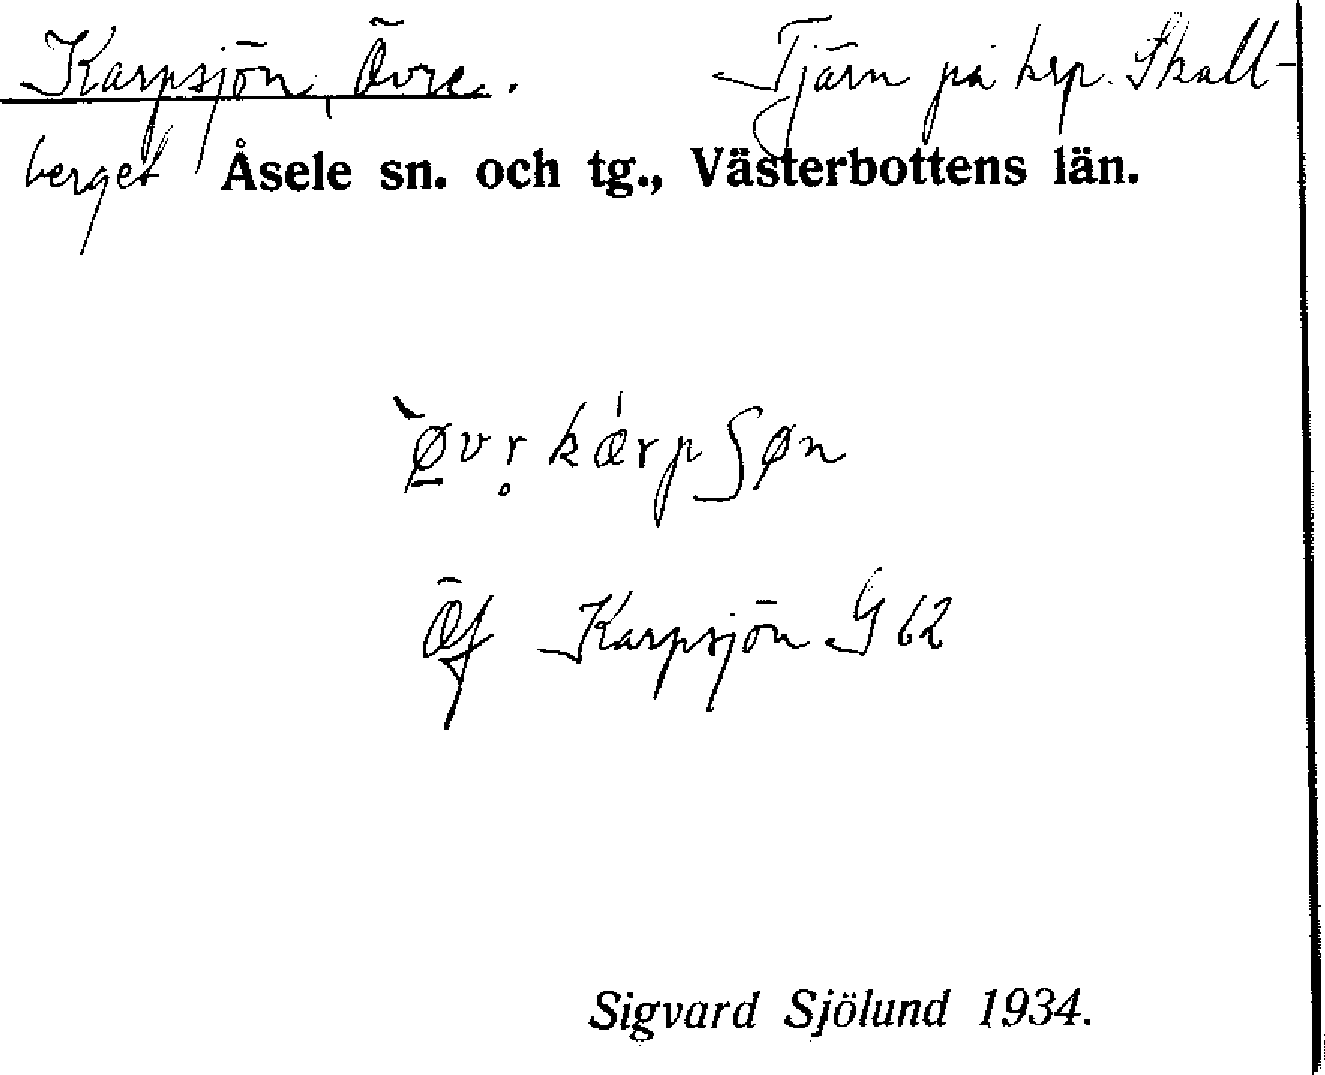 Karpsjön, Övre. Tjärn på krp. Skall-
berget Åsele sn. och tg., Västerbottens län.
`ø̲vr̥ kærpʃøn
Öf Karpsjön G 62
Sigvard Sjölund 1934.